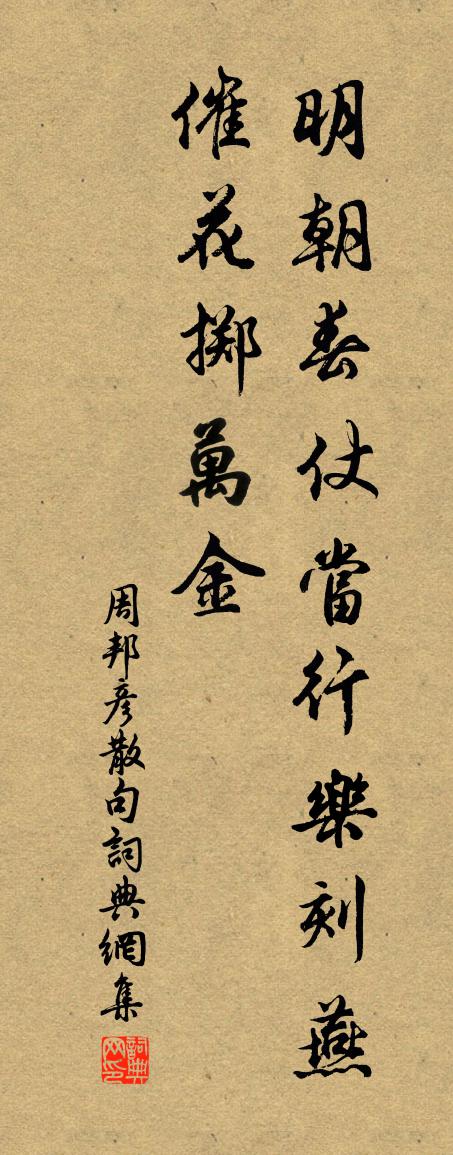 明朝春仗當行樂刻燕
催花擲萬金
周邦彥散句詞典網集
詞典网印